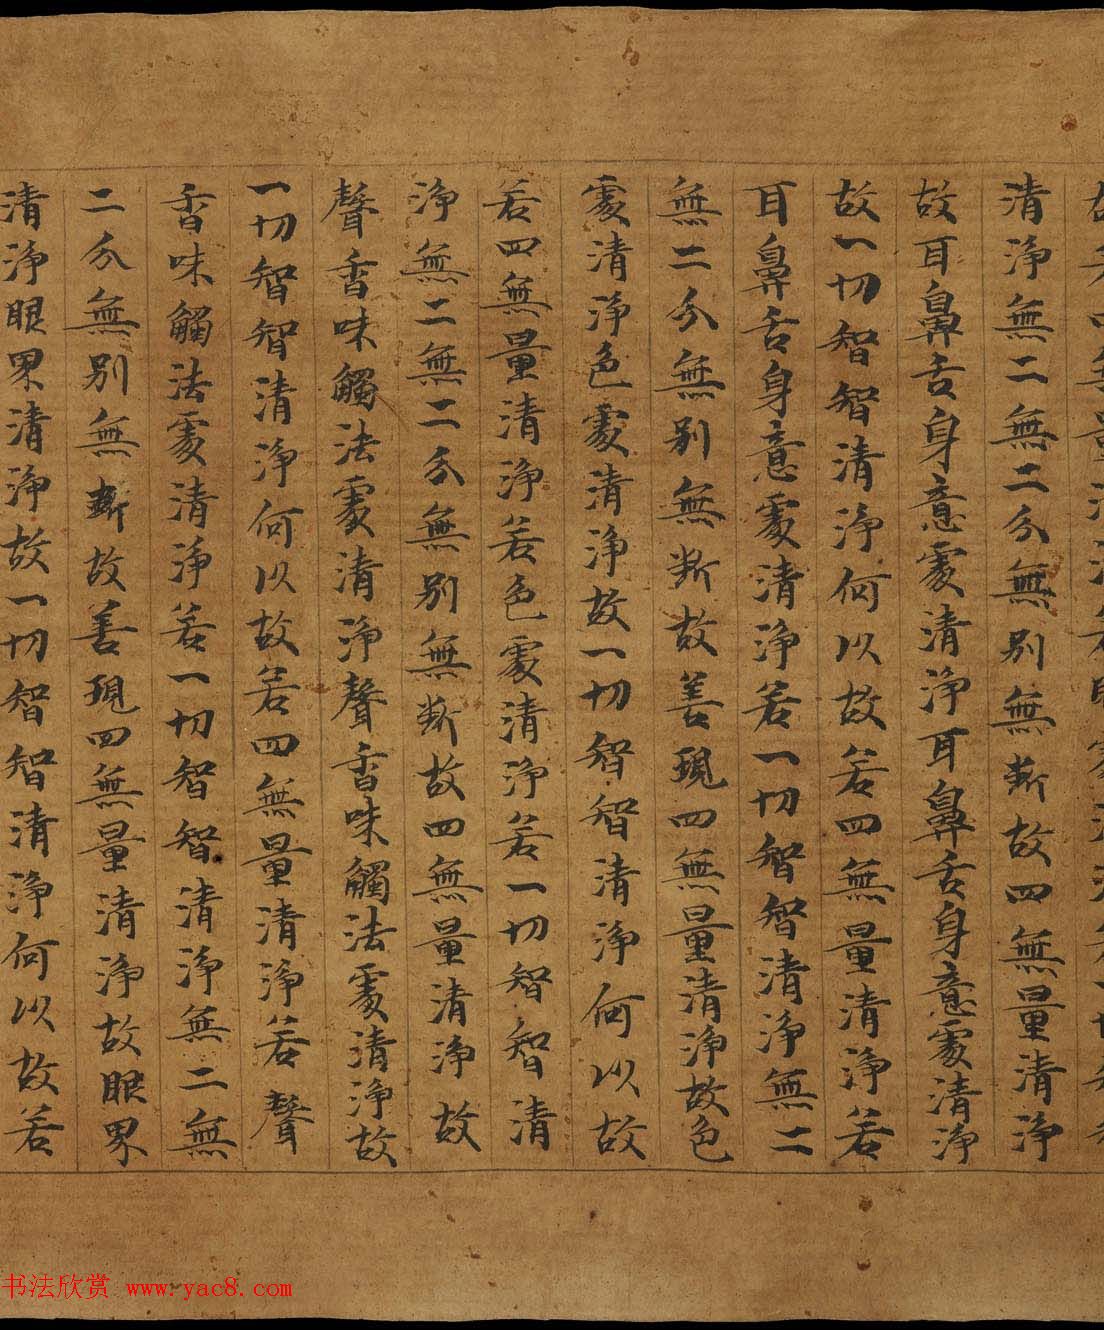 清淨無二無二分無別無斷故四無量清淨
故耳鼻舌身意處清淨耳鼻舌身意處清淨
故一切智智清淨何以故若四無量清淨若
耳鼻舌身意處清淨若一切智智清淨無二
無二分無別無斷故善現四無量清淨故色
處清淨色處清淨故一切智智清淨何以故
若四無量清淨若色處清淨若一切智智清
淨無二無二分無別無斷故四無量清淨故
聲香味觸法處清淨聲香味觸法處清淨故
一切智智清淨何以故若四無量清淨若聲
香味觸法處清淨若一切智智清淨無二無
二分無別無斷故善現四無量清淨故眼界
清淨眼界清淨故一切智智清淨何以故若
书法欣赏 www.yac8.com